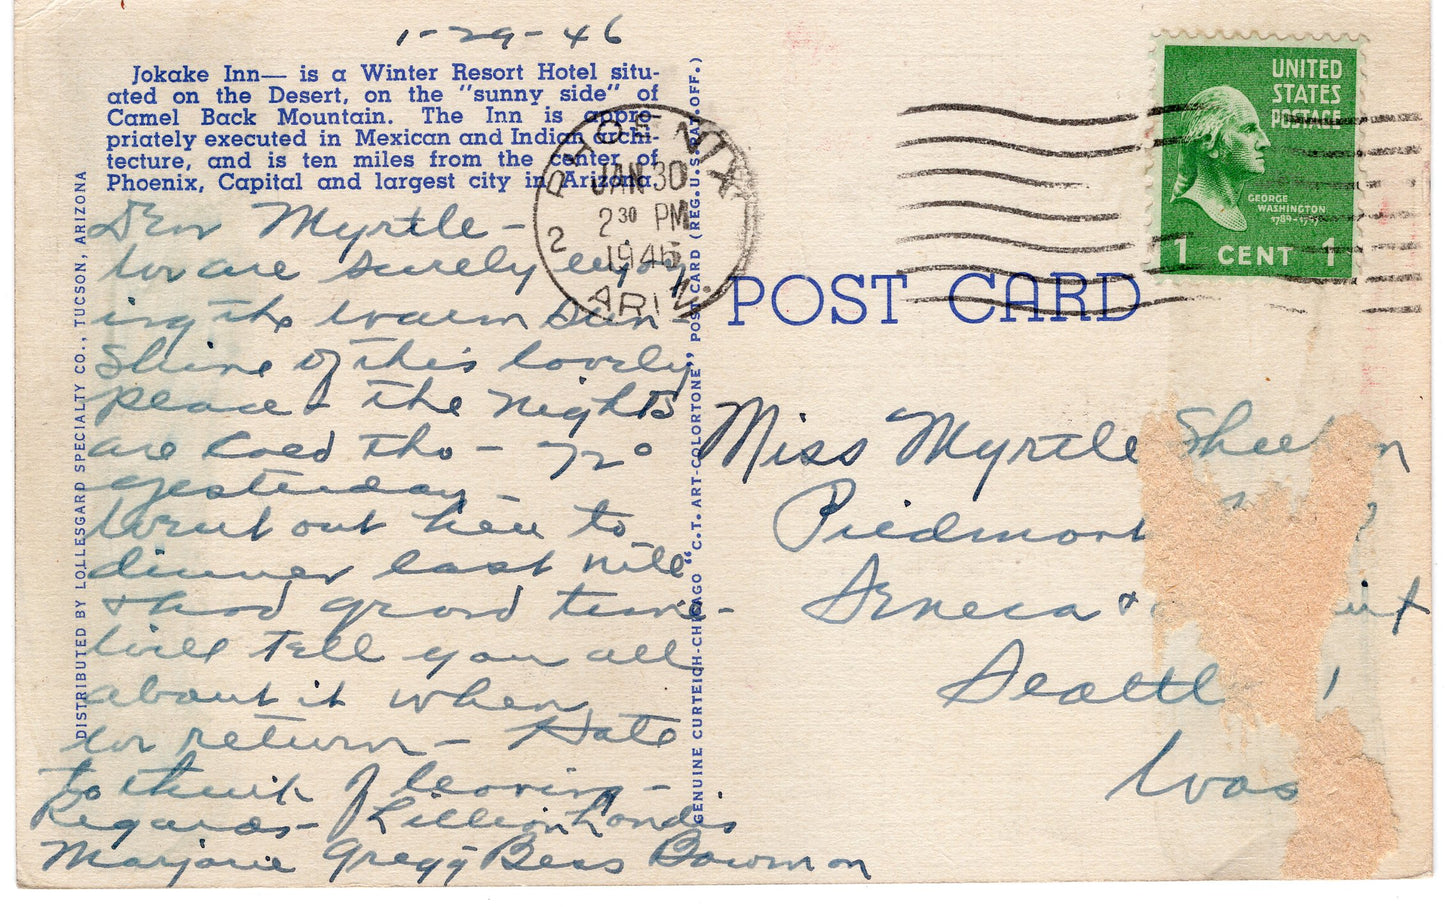 1-29-46
Jokake Inn— is a Winter Resort Hotel situ-
ated on the Desert, on the "sunny side" of
Camel Back Mountain. The Inn is appro-
priately executed in Mexican and Indian archi-
tecture, and is ten miles from the center of
Phoenix, Capital and largest city in Arizona.
Dear Myrtle -
We are surely enjoy
ing the warm sun-
shine of this lovely
place - The nights
are cool tho - 72°
yesterday -
Went out here to
dinner last nite
+ had grand time -
Will tell you all
about it when
we return - Hate
to think of leaving -
Regards - Lillian Landis
Marjorie Gregg Bess Bowman
DISTRIBUTED BY LOLLESGARD SPECIALTY CO., TUCSON, ARIZONA
GENUINE CURTEICH-CHICAGO "C.T. ART-COLORTONE" POST CARD (REG. U.S. PAT. OFF.)
PHOENIX
JAN 30
2 30 PM
1946
2
ARIZ.
UNITED
STATES
POSTAGE
GEORGE
WASHINGTON
1789-1797
1 CENT 1
POST CARD
Miss Myrtle
Piedmont
Seneca +
Seattle 1
Was